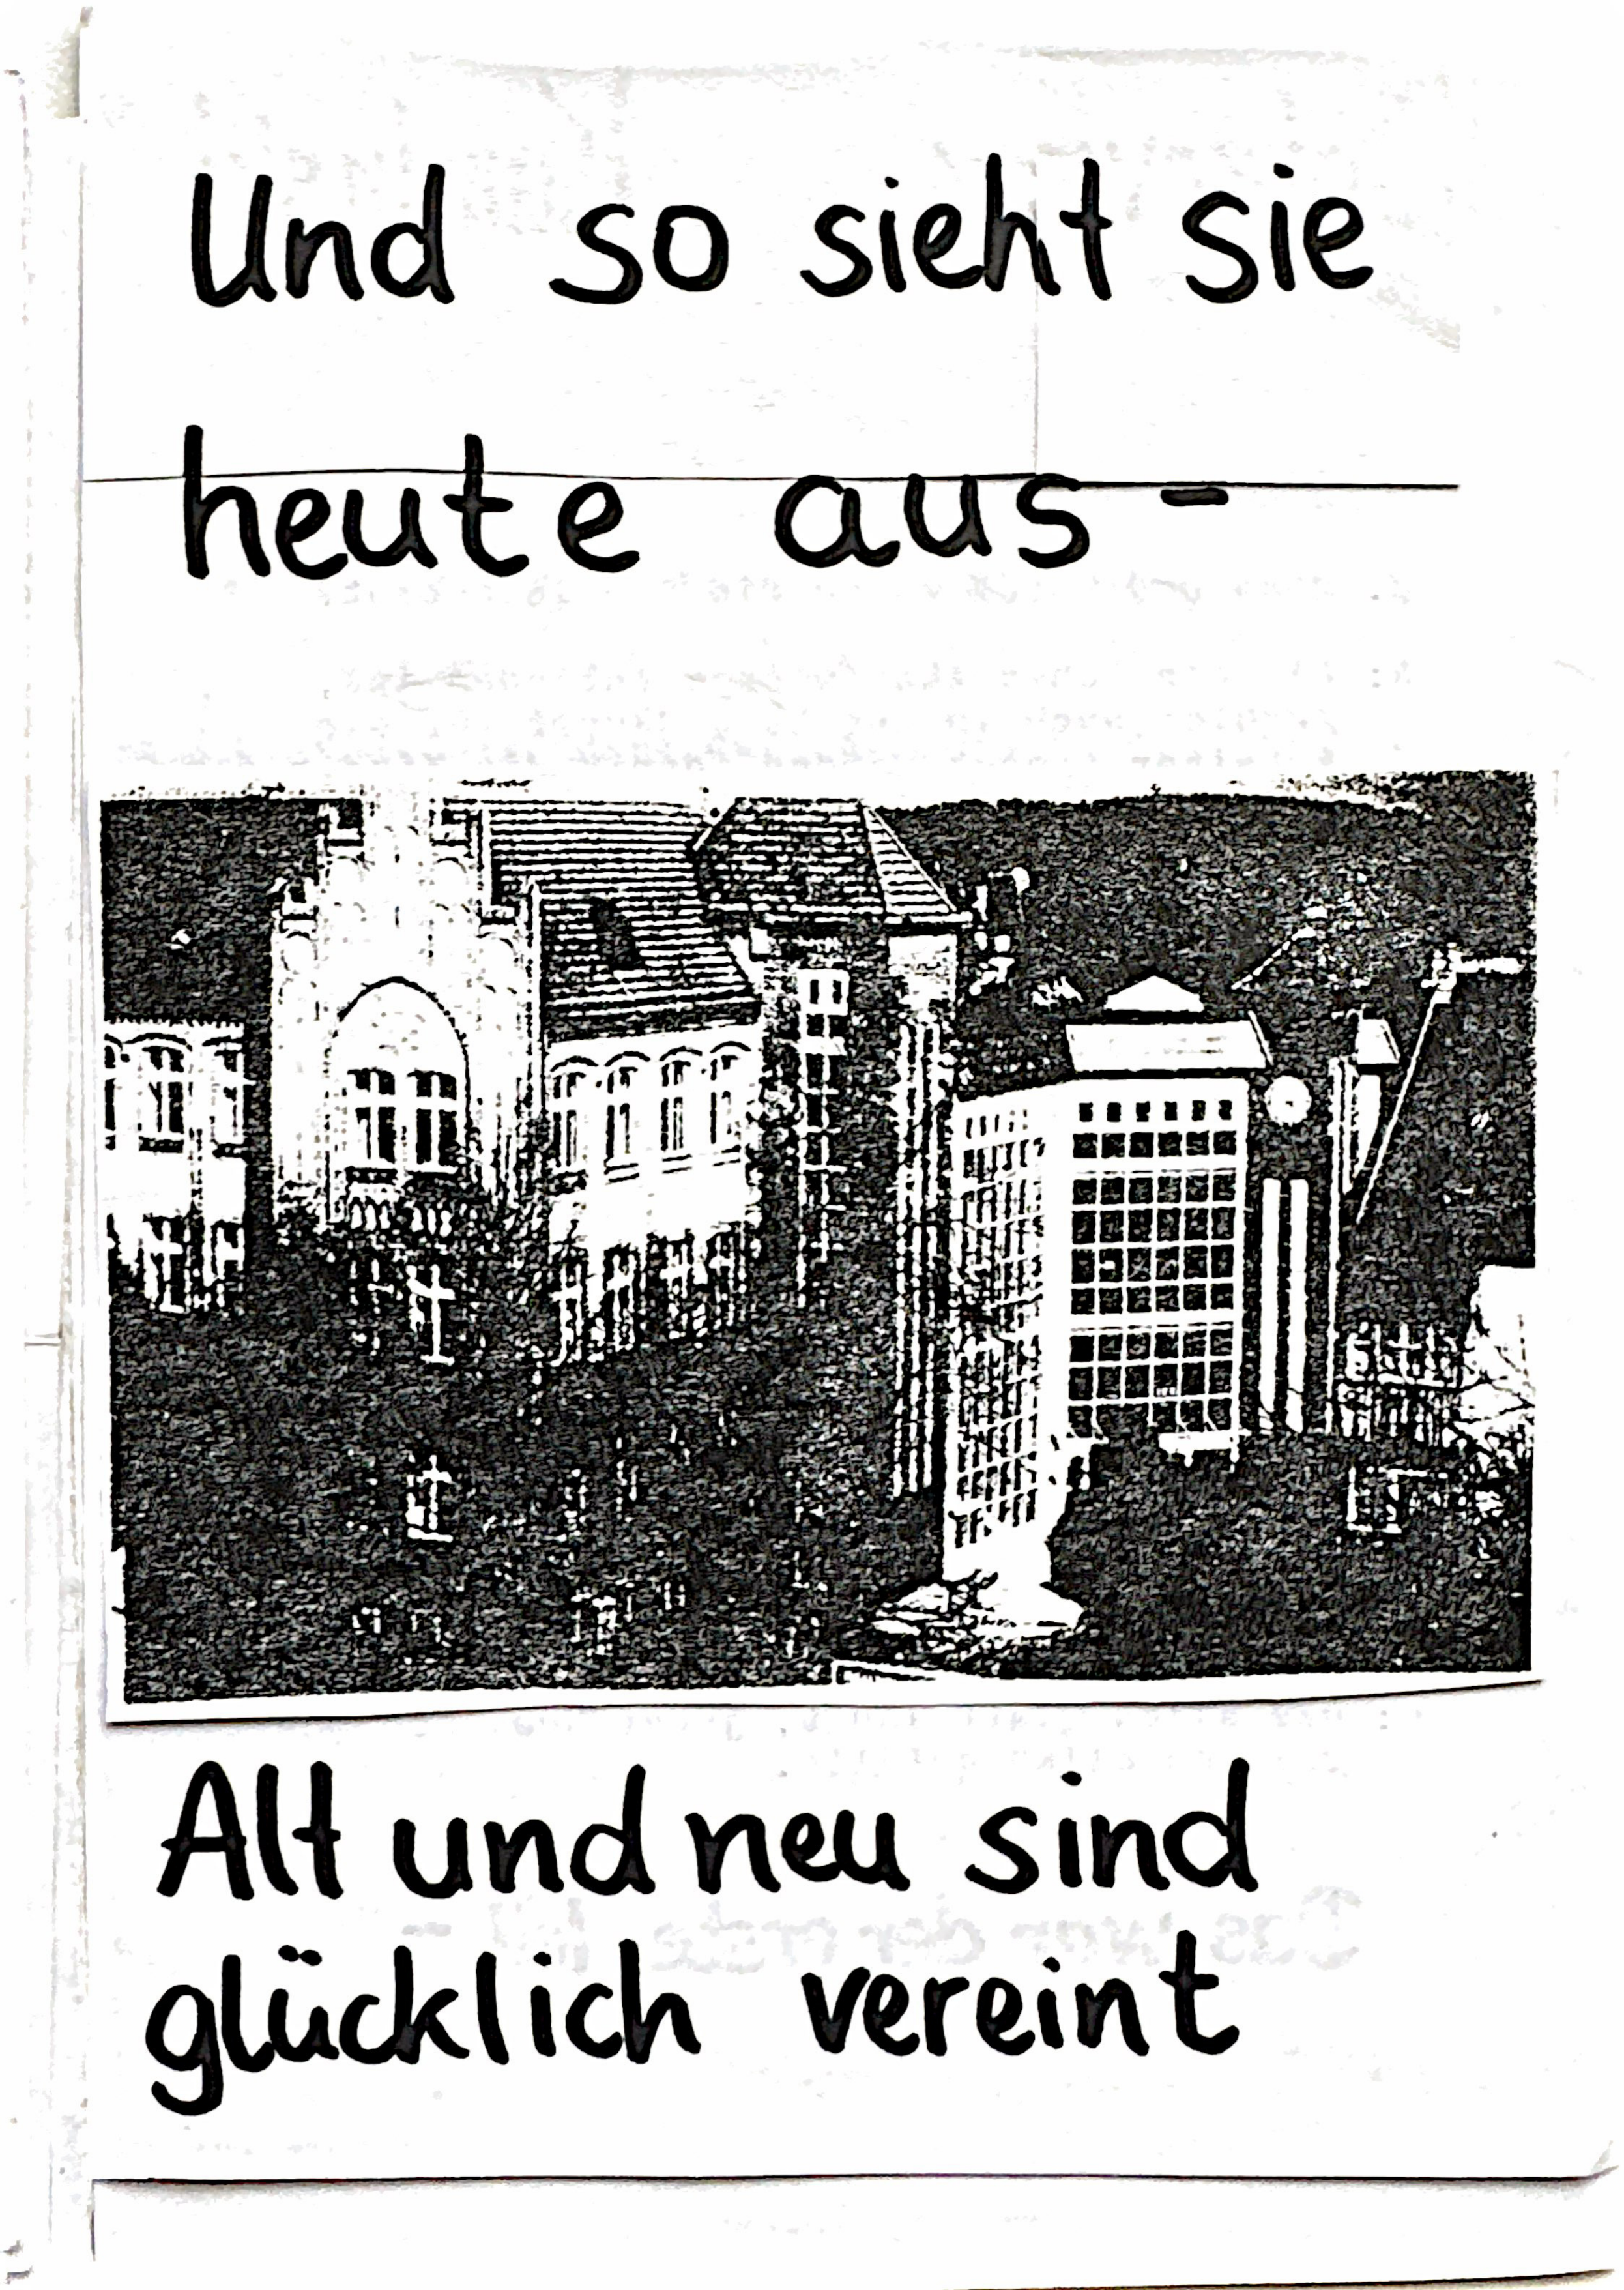 Und so sieht sie
heute aus -
Alt und neu sind
glücklich vereint